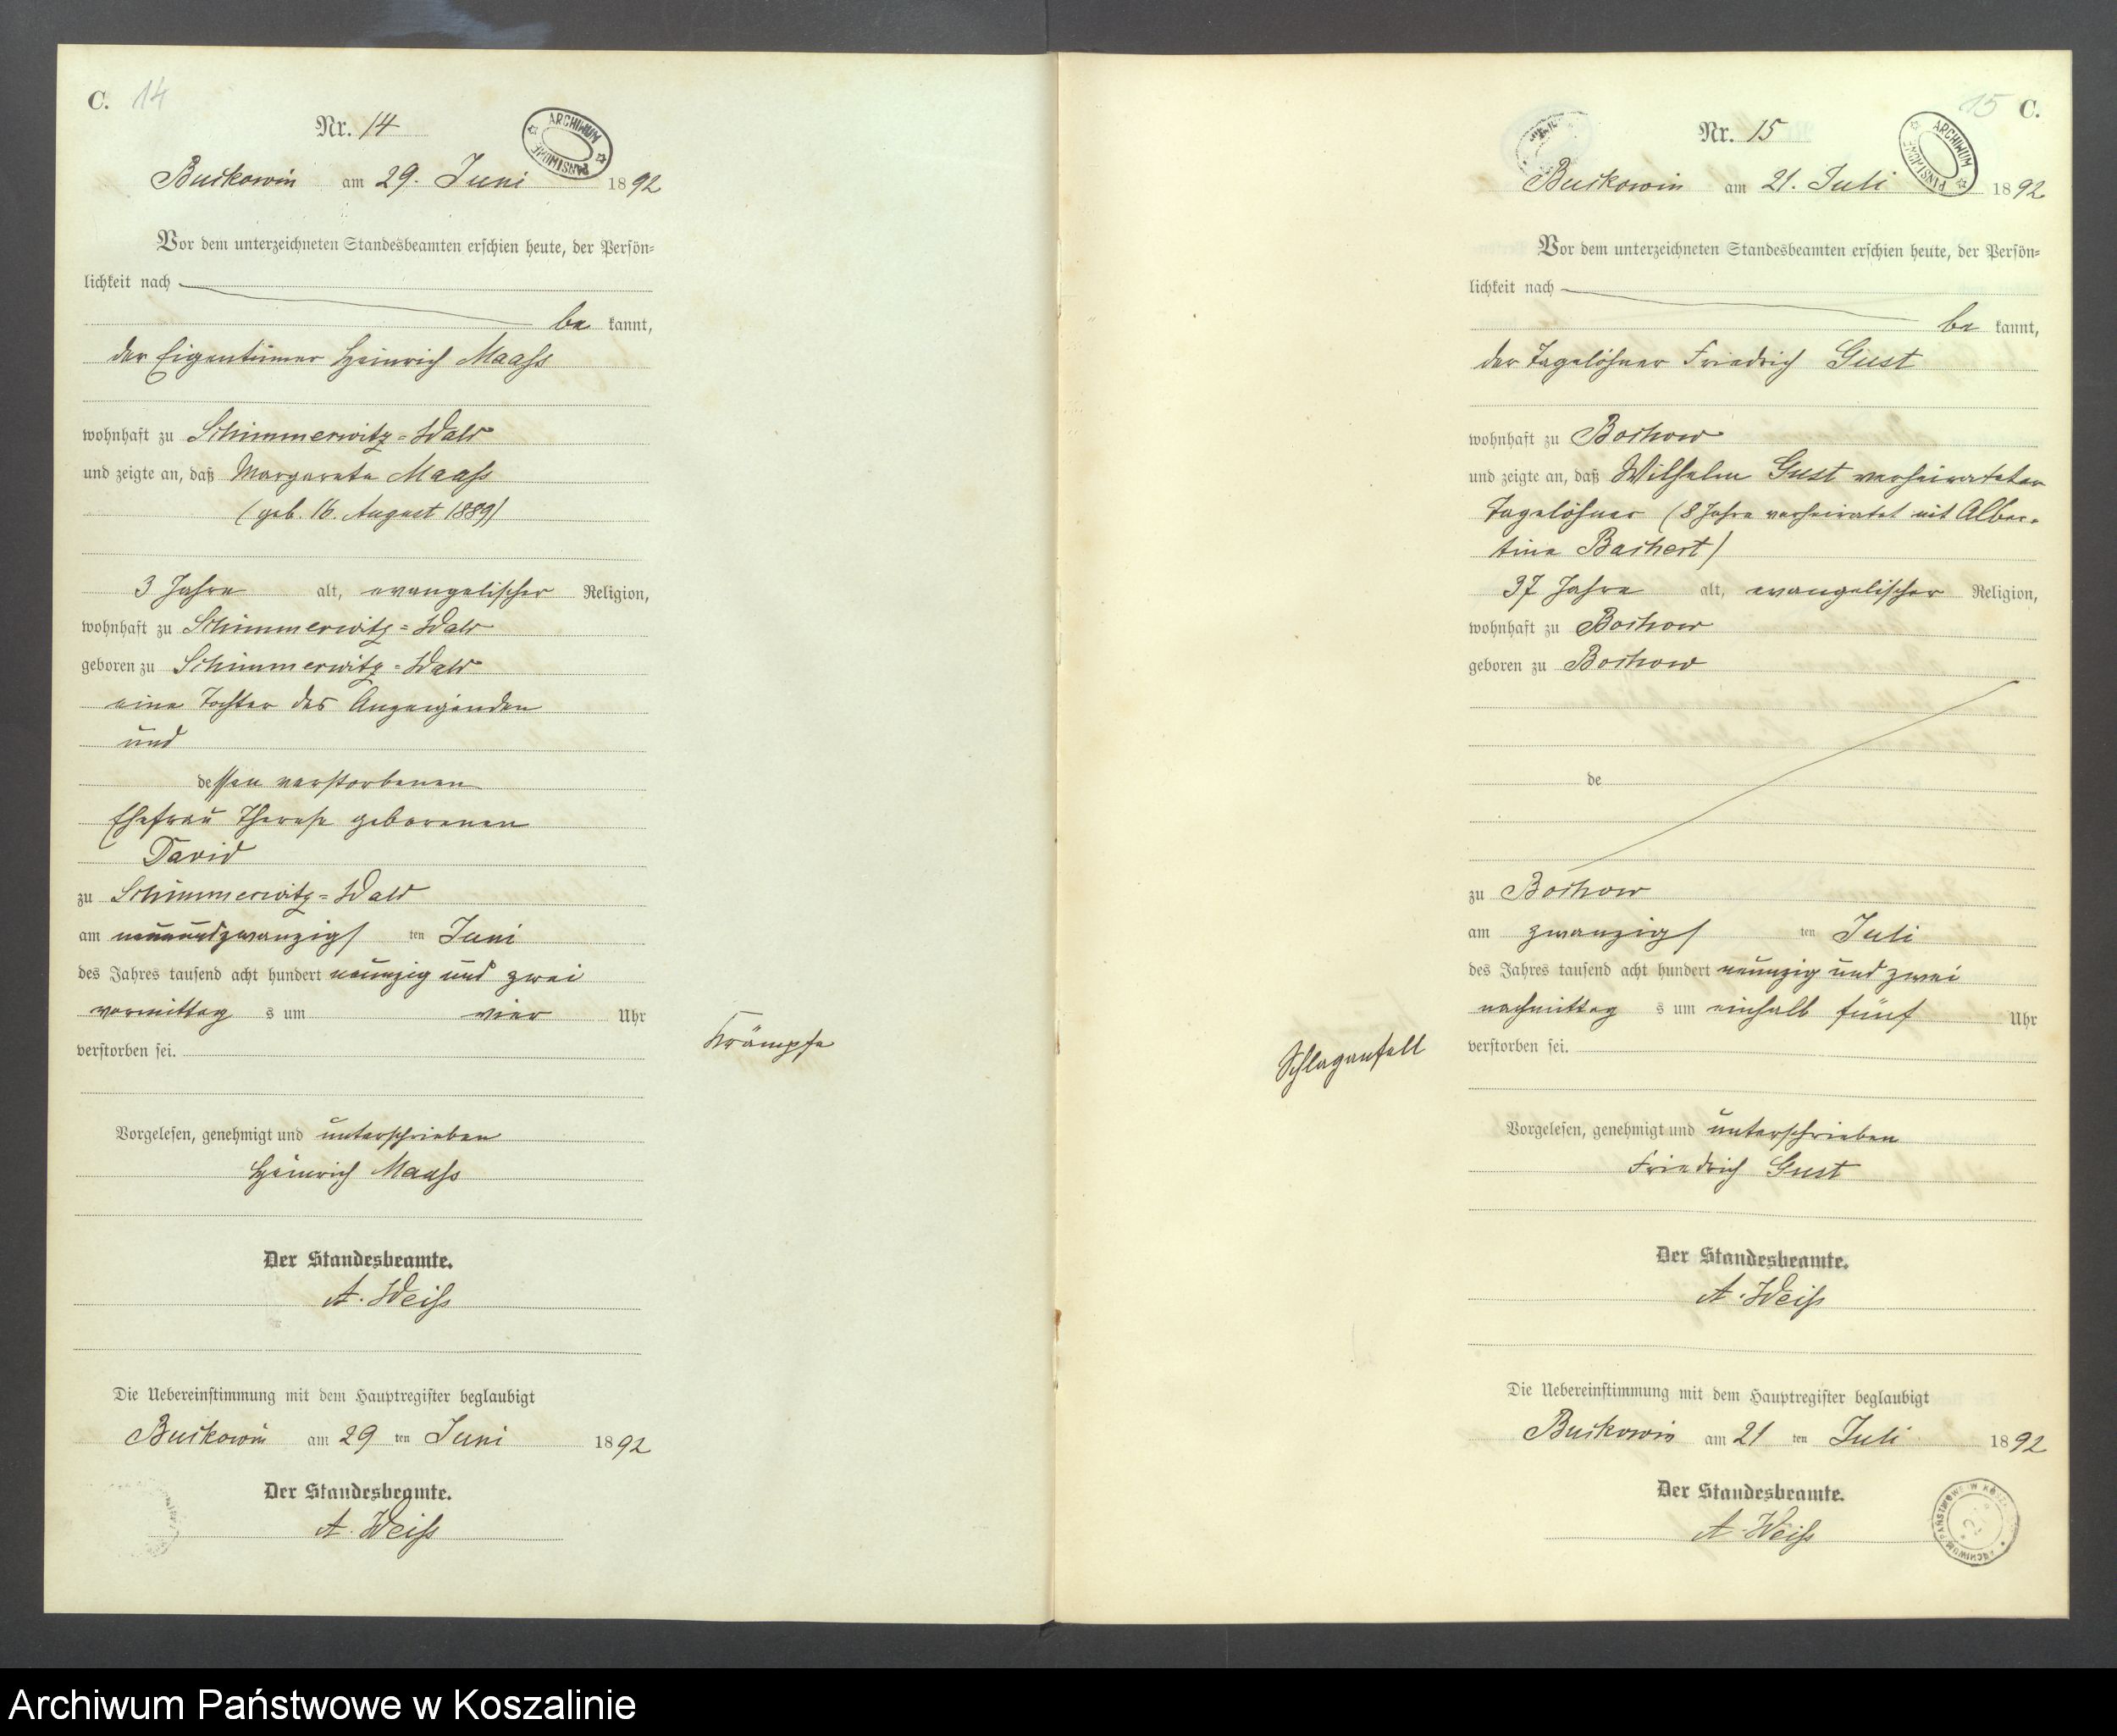 C. 14
Nr. 14
ARCHIWUM
Buckowin am 29. Juni 1892
Vor dem unterzeichneten Standesbeamten erschien heute, der Persön=
lichkeit nach
be kannt,
der Eigentümer Heinrich Maass
wohnhaft zu Schimmerwitz=Wald
und zeigte an, daß Margarete Maass
(geb. 16. August 1889)
3 Jahre alt, evangelischer Religion,
wohnhaft zu Schimmerwitz=Wald
geboren zu Schimmerwitz=Wald
eine Tochter des Anzeigenden
und
dessen verstorbenen
Ehefrau Therese geborenen
David
zu Schimmerwitz=Wald
am neunundzwanzigs ten Juni
des Jahres tausend acht hundert neunzig und zwei
vormittag s um vier Uhr
verstorben sei.
Krämpfe
Vorgelesen, genehmigt und unterschrieben
Heinrich Maass
Der Standesbeamte.
A. Weiss
Die Uebereinstimmung mit dem Hauptregister beglaubigt
Buckowin am 29 ten Juni 1892
Der Standesbeamte.
A. Weiss
15 C.
Nr. 15
ARCHIWUM
Buckowin am 21. Juli 1892
Vor dem unterzeichneten Standesbeamten erschien heute, der Persön=
lichkeit nach
be kannt,
der Tagelöhner Friedrich Gust
wohnhaft zu Bochow
und zeigte an, daß Wilhelm Gust verheirateter
Tagelöhner (8 Jahre verheiratet mit Alber=
tine Bachert)
37 Jahre alt, evangelischer Religion,
wohnhaft zu Bochow
geboren zu Bochow
de
zu Bochow
am zwanzigs ten Juli
des Jahres tausend acht hundert neunzig und zwei
nachmittag s um einhalb fünf Uhr
verstorben sei.
Schlaganfall
Vorgelesen, genehmigt und unterschrieben
Friedrich Gust
Der Standesbeamte.
A. Weiss
Die Uebereinstimmung mit dem Hauptregister beglaubigt
Buckowin am 21 ten Juli 1892
Der Standesbeamte.
A. Weiss
Archiwum Państwowe w Koszalinie